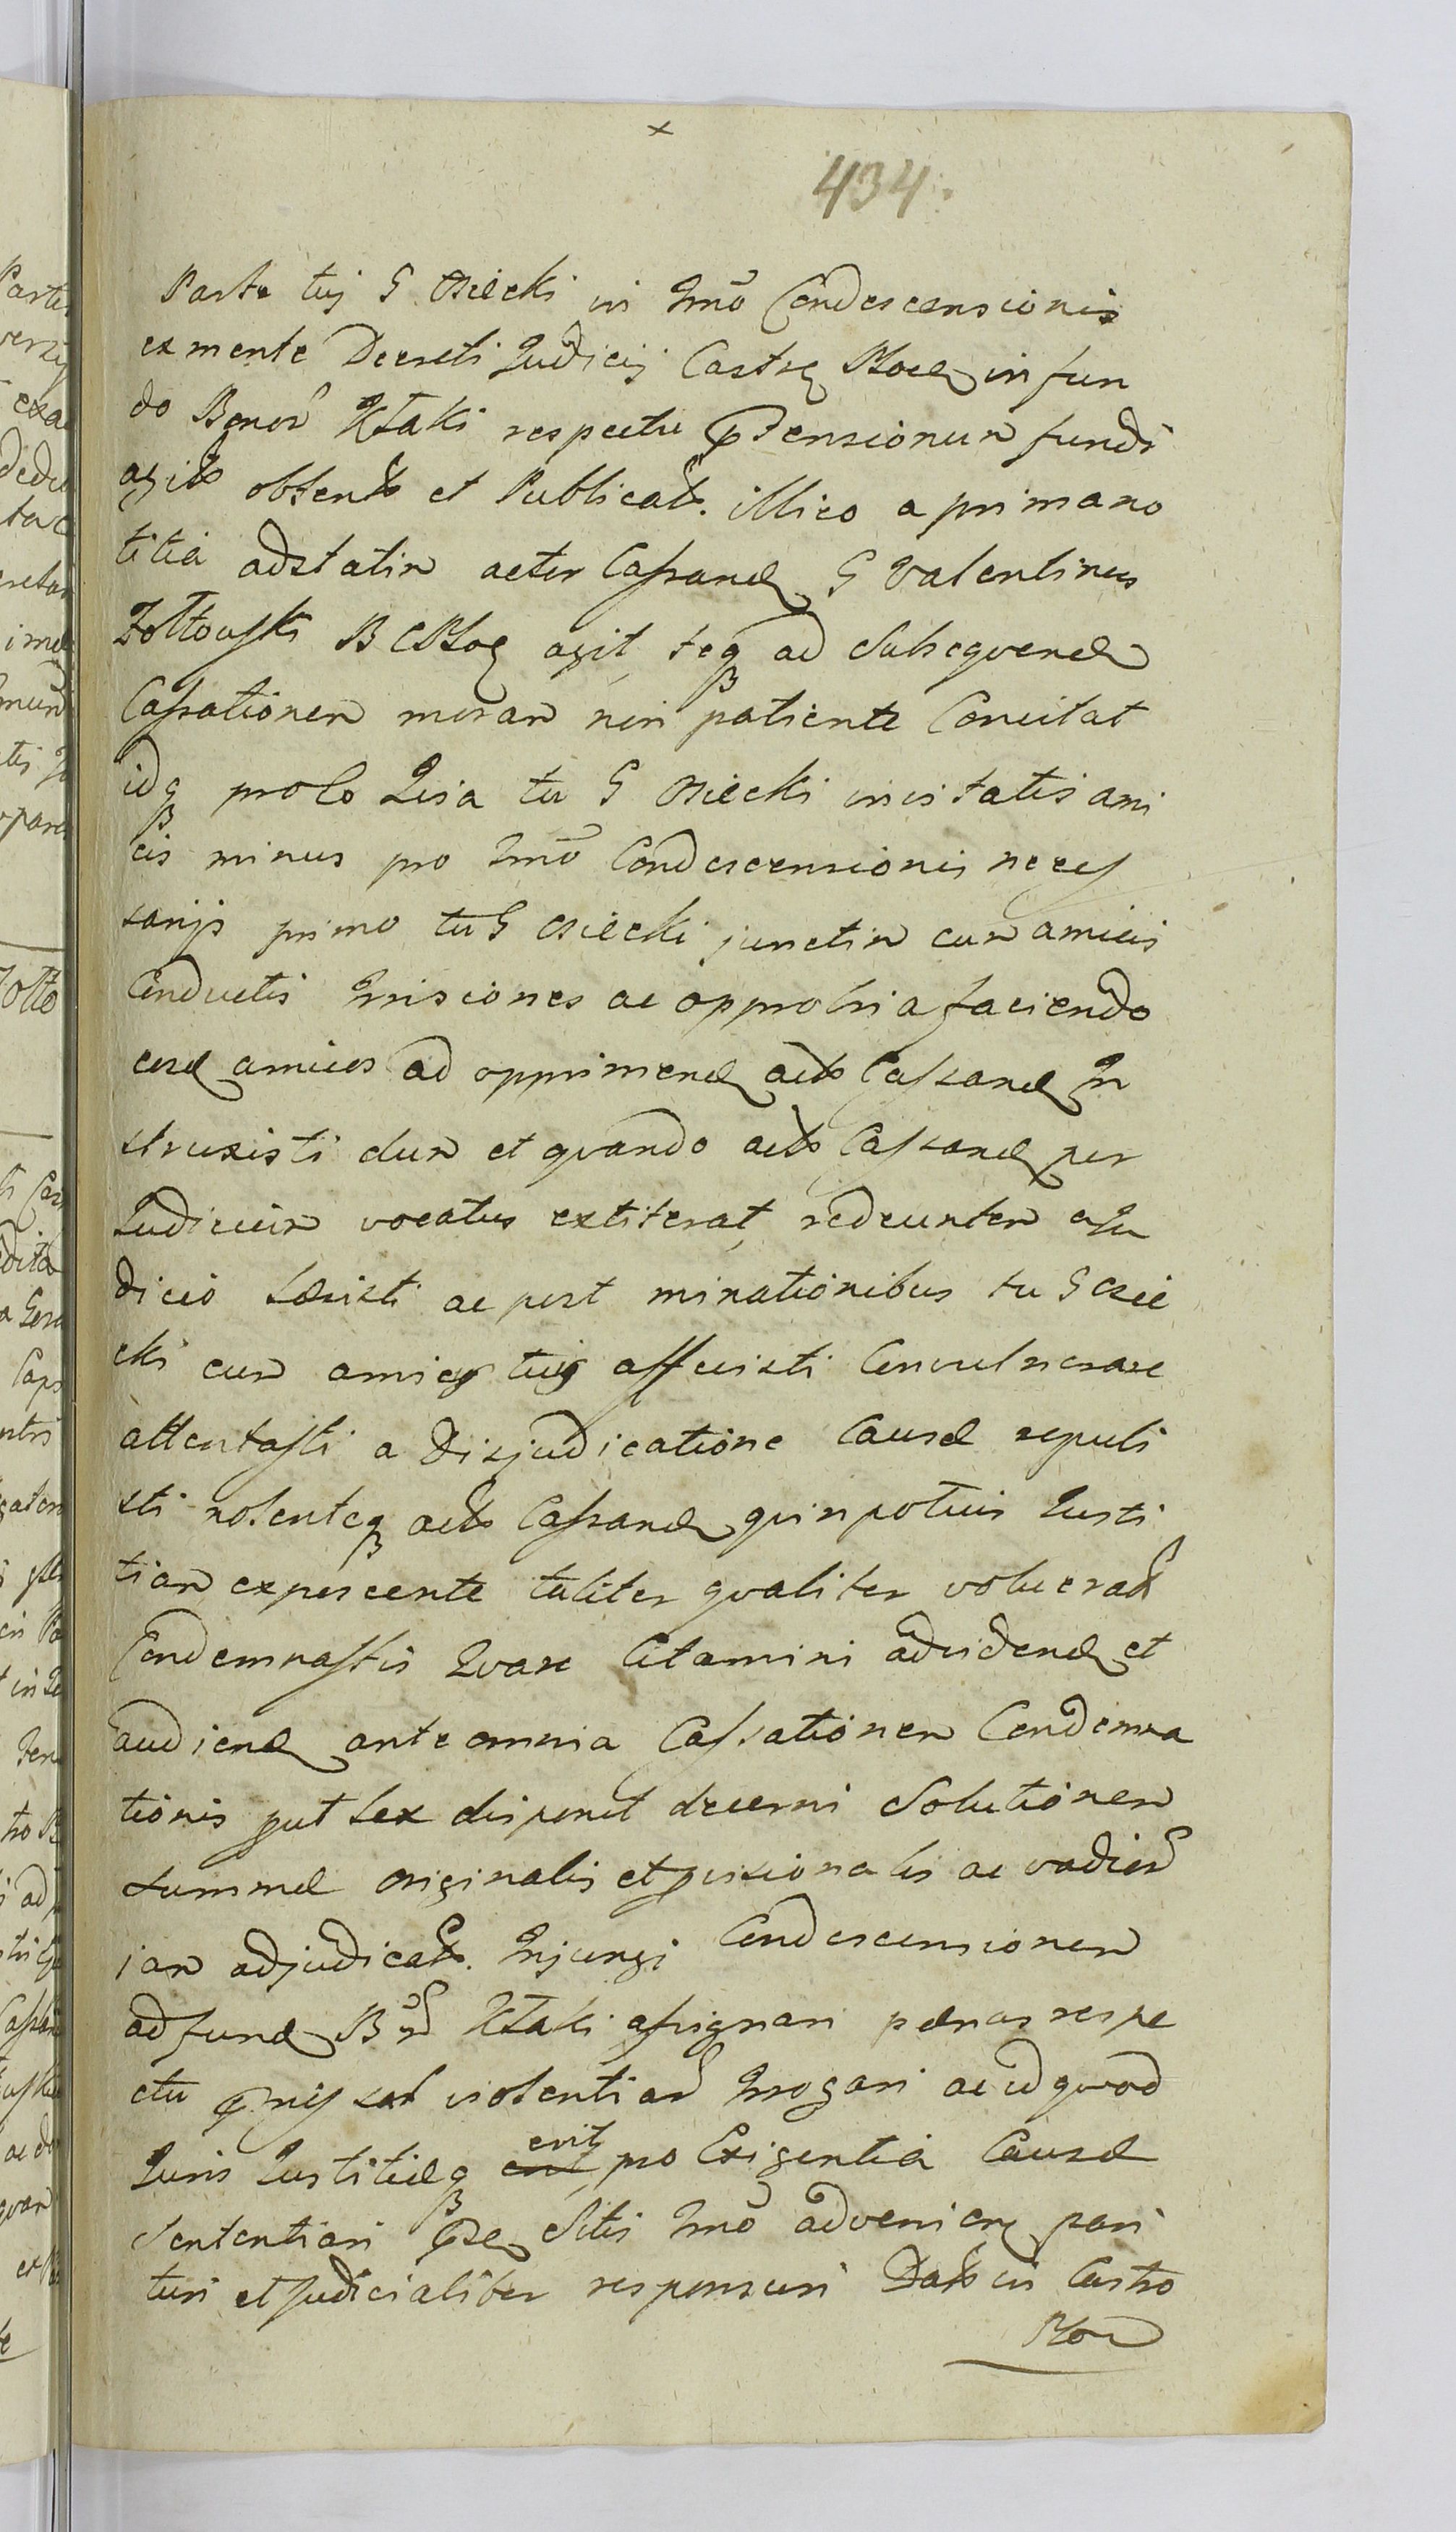 434
Parte tuj G Osiecki in Imo Condescensionis
ex mente Decreti Judicij Castr Ploc in fun
do Bonor Ktaki respectu ptensionum fundi
agito obtento et Publicato. illico a prima no
titia adstatim actor Cassand G Valentinus
Zołtowski B C Ploc agit teq ad Subseqvend
Cassationem moram non patiente Concitat
idq prolo Qvia tu G Osiecki invitatis ami
cis minus pro Imo Condescensionis neces
sarijs primo tu G Osiecki junctim cum amicis
Conductis Irrisiones ac opprobria faciendo
eosd amicos ad opprimend acto Cassand In
struxisti dum et qvando acto Cassand per
Judicium vocatus extiterat, redeuntem a Ju
dicio læsisti ac post minationibus tu G Osie
cki cum amicis tuis affecisti Convulnerare
attentasti a Disjudicatione Causæ repuli
sti nolenteq acto Cassand qvin potius Justi
tiam exposcente taliter qvaliter volueras
Condemnastis Qvare Citamini ad vidend et
audiend ante omnia Cassationem Condemna
tionis put Lex disponit decerni Solutionem
Summæ originalis et pvisionalis ac vadior
jam adjudicato. Injungi Condescensionem
ad fund Bnor Ktaki assignari pænas respe
ctu pmissar violentiar Irrogari ac id qvod
Juris Justitiæq erit pro Exigentia Causæ
Sententiari pde Sitis Imo advenien pari
turi et Judicialiter responsuri Dato in Castro
Ploc